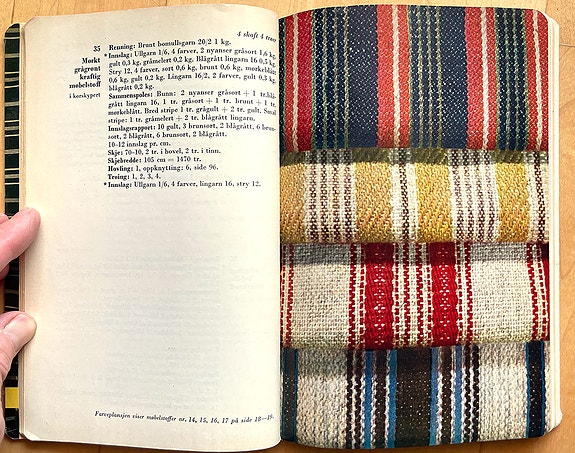 4 skaft 4 trøer
35
Mørkt
grågrønt
kraftig
møbelstoff
i korskypert
Renning: Brunt bomullsgarn 20/2 1 kg.
*Innslag: Ullgarn 1/6, 4 farver, 2 nyanser gråsort 1,6 kg,
gult 0,3 kg, gråmelert 0,2 kg, Blågrått lingarn 16 0,5 kg
Stry 12, 4 farver, sort 0,6 kg, brunt 0,6 kg, mørkeblått
0,6 kg, gult 0,2 kg. Lingarn 16/2, 2 farver, gult 0,3 kg,
blågrått 0,2 kg.
Sammenspoles: Bunn: 2 nyanser gråsort + 1 tr. blå-
grått lingarn 16, 1 tr. gråsort + 1 tr. brunt + 1 tr.
mørkeblått. Bred stripe 1 tr. grågult + 2 tr. gult. Smal
stripe: 1 tr. gråmelert + 2 tr. blågrått lingarn.
Innslagsrapport: 10 gult, 3 brunsort, 2 blågrått, 6 brun-
sort, 2 blågrått, 6 brunsort, 2 blågrått.
10–12 innslag pr. cm.
Skje: 70–10, 2 tr. i hovel, 2 tr. i tinn.
Skjebredde: 105 cm = 1470 tr.
Hovling: 1, oppknytting: 6, side 96.
Trøing: 1, 2, 3, 4.
*Innslag: Ullgarn 1/6, 4 farver, lingarn 16, stry 12.
Farveplansjen viser møbelstoffer nr. 14, 15, 16, 17 på side 18–19.